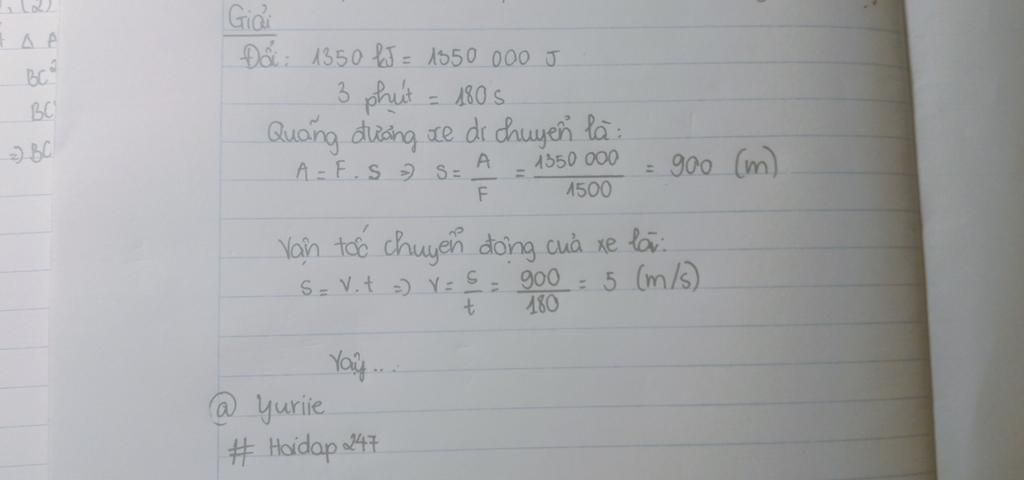 Giải
Đổi: 1350 kJ = 1350 000 J
3 phút = 180 s
Quãng đường xe di chuyển là:
A = F . s => s = A/F = 1350 000/1500 = 900 (m)
Vận tốc chuyển động của xe là:
s = v.t => v = s/t = 900/180 = 5 (m/s)
Vậy...
@ yuriie
# Hoidap247
Δ
BC²
BC
=> BC